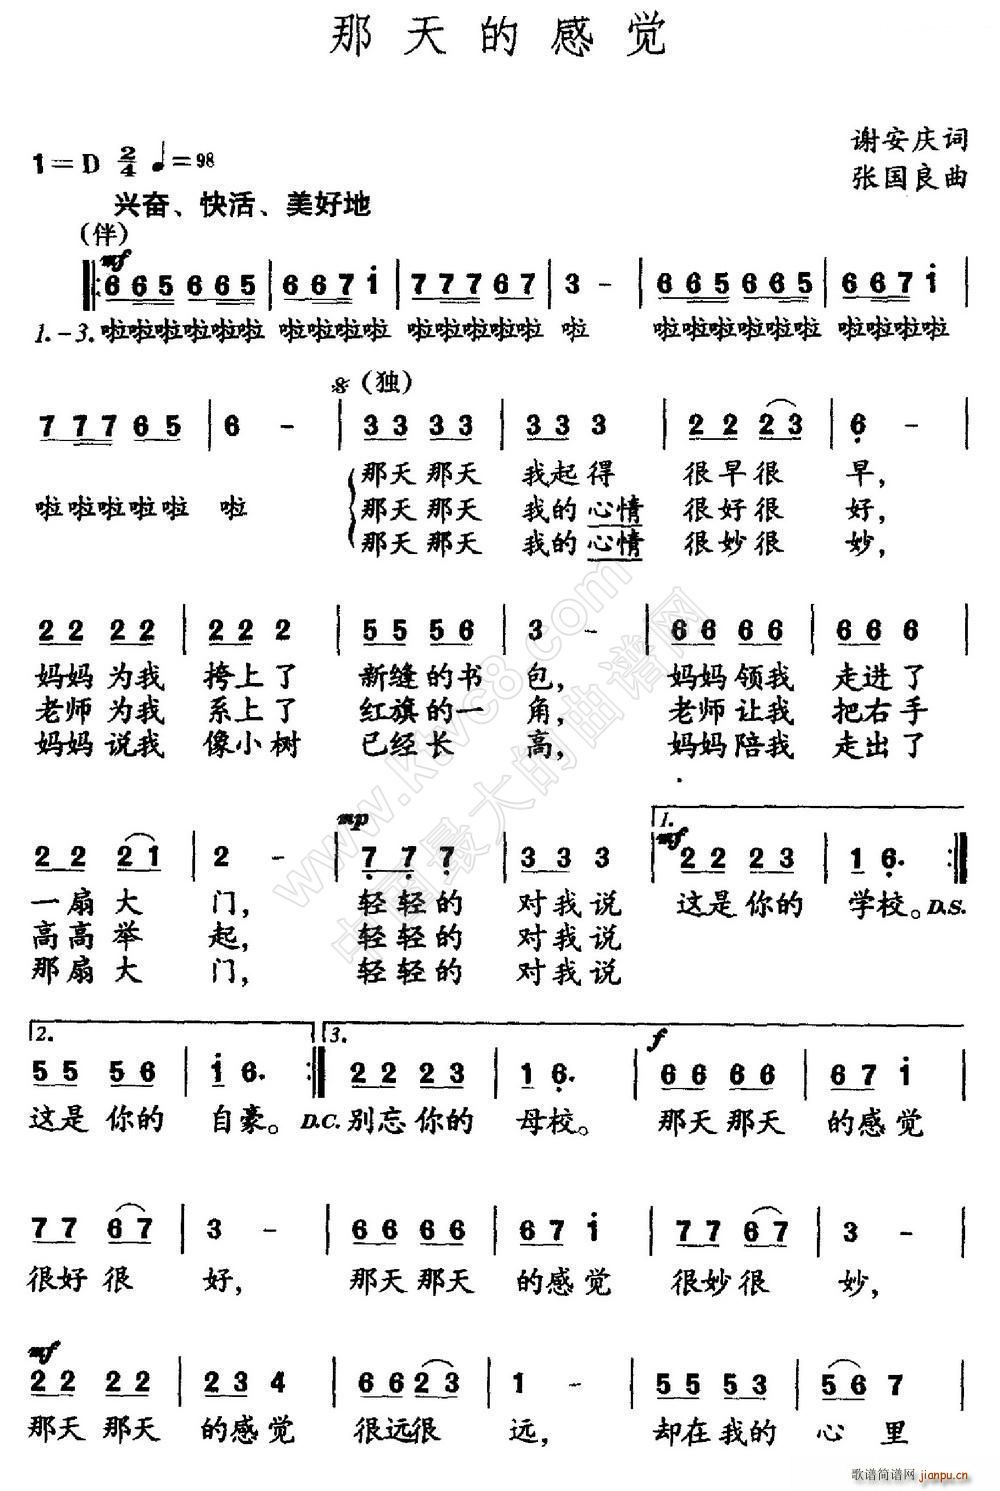 那天的感觉
谢安庆词
1=D 2/4 ♩=98
张国良曲
兴奋、快活、美好地
(伴)
mf
665665 | 667i | 77767 | 3 - | 665665 | 667i |
1.-3.啦啦啦啦啦啦 啦啦啦啦 啦啦啦啦啦 啦 啦啦啦啦啦啦 啦啦啦啦
(独)
77765 | 6 - | 33 33 | 33 3 | 22 23 | 6 - |
那天那天 我起得 很早很 早,
啦啦啦啦啦 啦 那天那天 我的心情 很好很 好,
那天那天 我的心情 很妙很 妙,
22 22 | 22 2 | 55 56 | 3 - | 66 66 | 66 6 |
妈妈为我 挎上了 新缝的书 包, 妈妈领我 走进了
老师为我 系上了 红旗的一 角, 老师让我 把右手
妈妈说我 像小树 已经长 高, 妈妈陪我 走出了
mp 1. mf
22 21 | 2 - | 77 7 | 33 3 | 22 23 | 1 6. :|
一扇大 门, 轻轻的 对我说 这是你的 学校。D.S.
高高举 起, 轻轻的 对我说
那扇大 门, 轻轻的 对我说
2. 3. f
55 56 | i 6. :| 22 23 | 1 6. | 66 66 | 67 i |
这是你的 自豪。D.C.别忘你的 母校。 那天那天 的感觉
77 67 | 3 - | 66 66 | 67 i | 77 67 | 3 - |
很好很 好, 那天那天 的感觉 很妙很 妙,
mf
22 22 | 23 4 | 66 23 | 1 - | 55 53 | 56 7 |
那天那天 的感觉 很远很 远, 却在我的 心里
www.kvc8.com
中国最大的曲谱网
歌谱简谱网 jianpu.cn